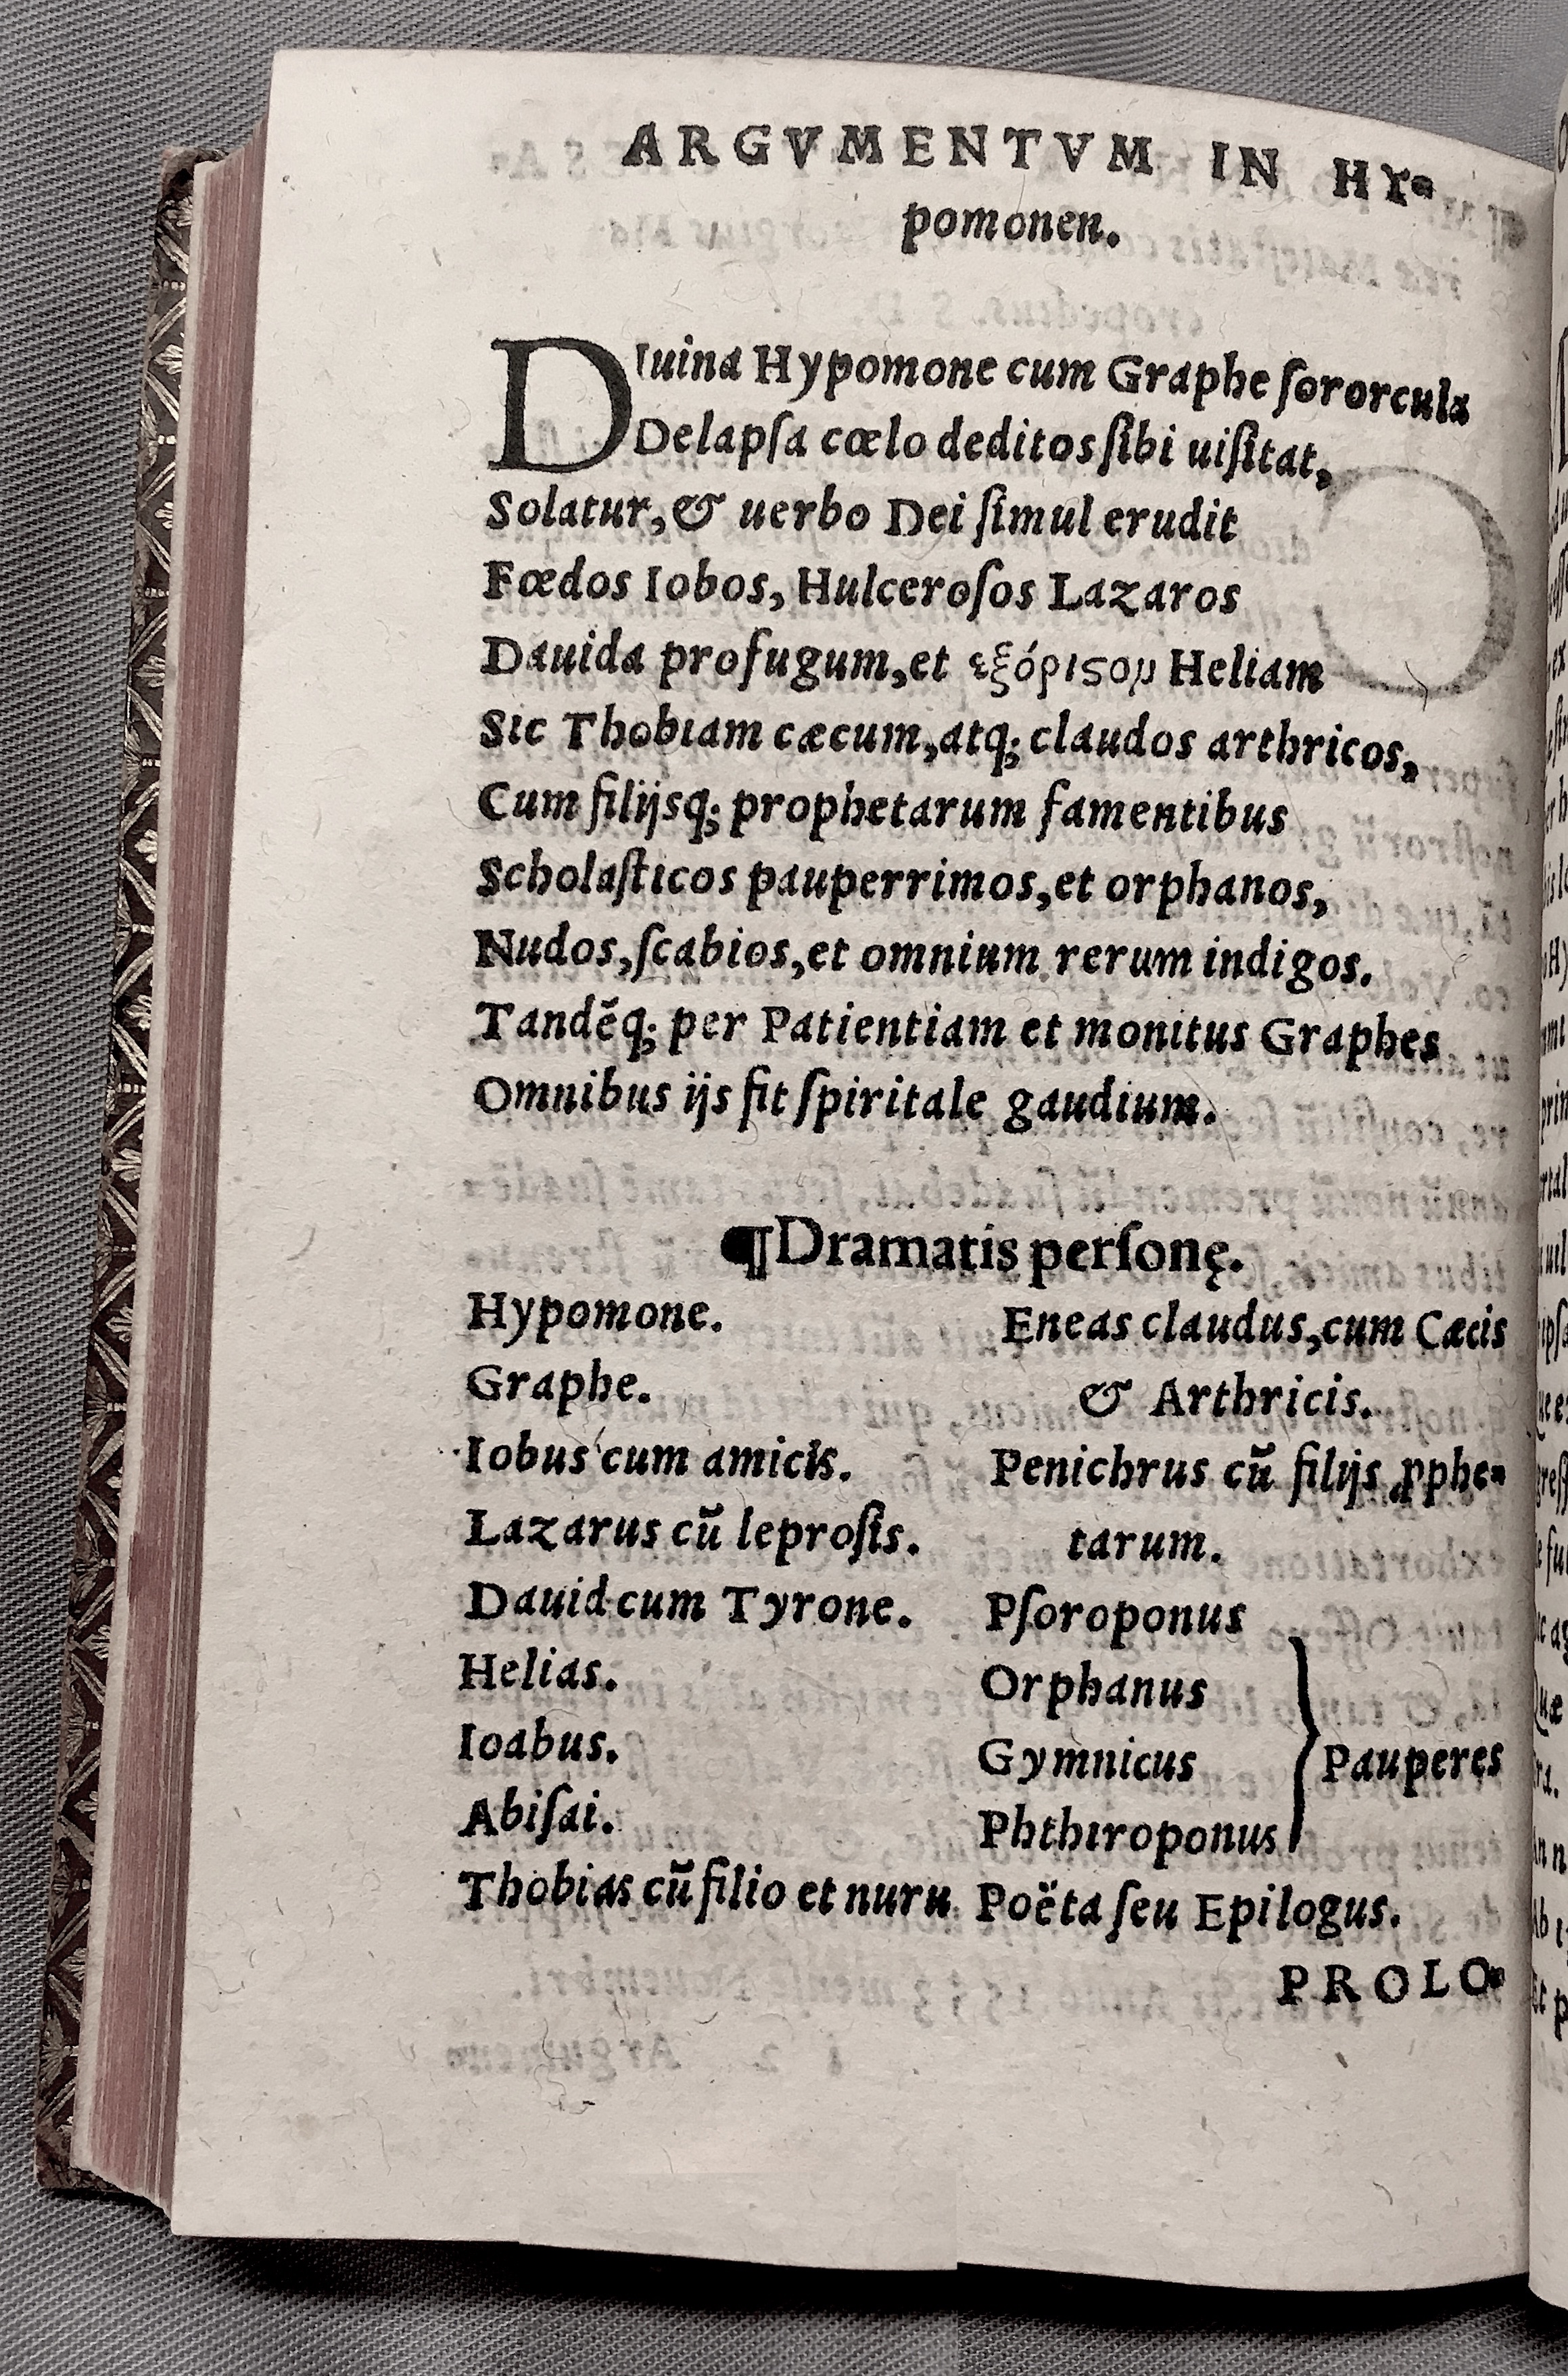 ARGVMENTVM IN HY=
pomonen.
DIuina Hypomone cum Graphe ſororcula
Delapſa cœlo deditos ſibi uiſitat,
Solatur, & uerbo Dei ſimul erudit
Fœdos Iobos, Hulceroſos Lazaros
Dauida profugum, et εξόριϛομ Heliam
Sic Thobiam cæcum, atq; claudos arthricos,
Cum filijsq; prophetarum famentibus
Scholaſticos pauperrimos, et orphanos,
Nudos, ſcabios, et omnium rerum indigos.
Tandēq; per Patientiam et monitus Graphes
Omnibus ijs fit ſpiritale gaudium.
¶Dramatis perſonę.
Hypomone.
Graphe.
Iobus cum amicis.
Lazarus cū leproſis.
Dauid cum Tyrone.
Helias.
Ioabus.
Abiſai.
Thobias cū filio et nuru
Eneas claudus, cum Cæcis
& Arthricis.
Penichrus cū filijs ꝓphe=
tarum.
Pſoroponus
Orphanus
Gymnicus
Phthiroponus
Pauperes
Poëta ſeu Epilogus.
PROLO=